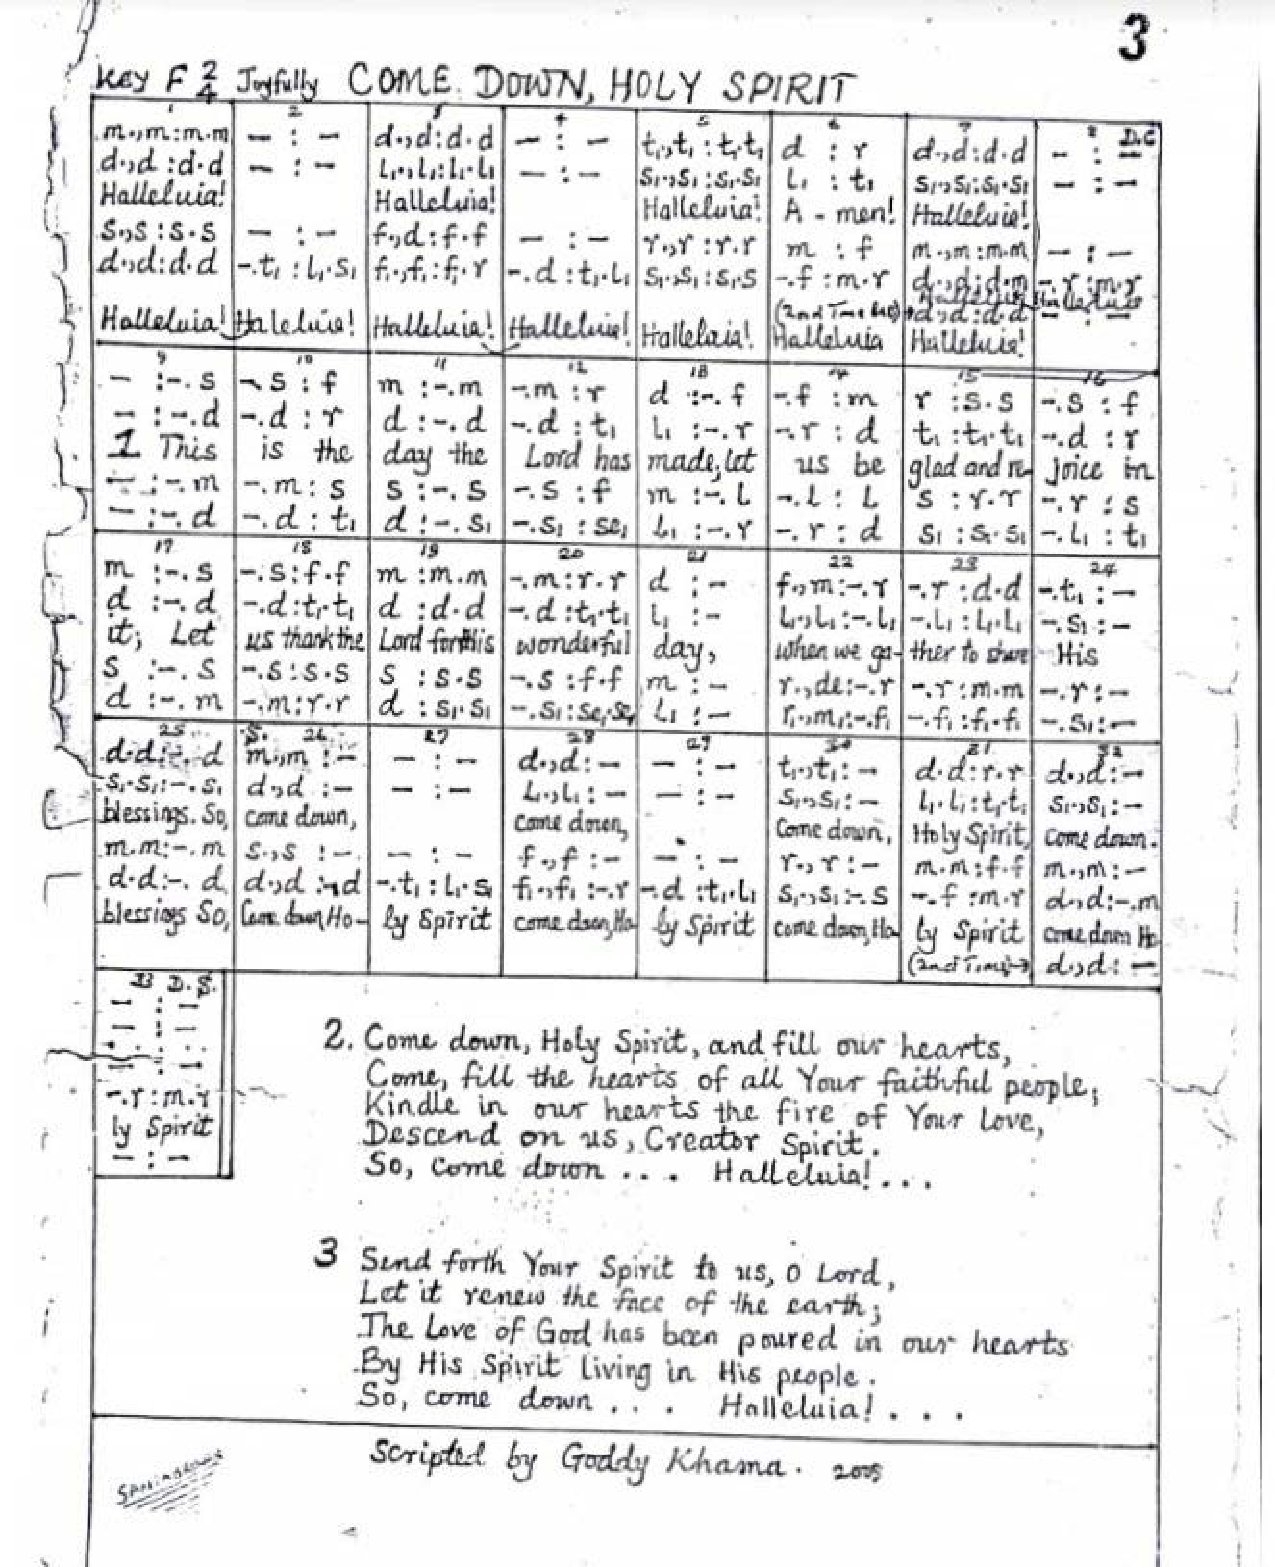 3
Key F 2/4 Joyfully COME DOWN, HOLY SPIRIT
1 2 3 4 5 6 7 8 D.C
m.,m:m.m – : – d.,d:d.d – : – t₁.,t₁:t₁.t₁ d : r d.,d:d.d – : –
d.,d:d.d – : – l₁.,l₁:l₁.l₁ – : – s₁.,s₁:s₁.s₁ l₁ : t₁ s₁.,s₁:s₁.s₁ – : –
Halleluia! Halleluia! Halleluia! A-men! Halleluia!
s.,s:s.s – : – f.,d:f.f – : – r.,r:r.r m : f m.,m:m.m – : –
d.,d:d.d –.t₁:l₁.s₁ f₁.,f₁:f₁.r –.d:t₁.l₁ s₁.,s₁:s₁.s –.f:m.r d.,d:d.m –.r:m.r
Halleluia Halleluia
(2nd Time d.,d:d.d – : –
Halleluia! Haleluia! Halleluia! Halleluia! Halleluia! Halleluia Halleluia!
9 10 11 12 13 14 15 16
– :–.s –.s:f m :–.m –.m:r d :–.f –.f:m r :s.s –.s:f
– :–.d –.d:r d :–.d –.d:t₁ l₁ :–.r –.r:d t₁:t₁.t₁ –.d:r
1 This is the day the Lord has made, let us be glad and re- joice in
– :–.m –.m:s s :–.s –.s:f m :–.l –.l:l s :r.r –.r:s
– :–.d –.d:t₁ d :–.s₁ –.s₁:se₁ l₁ :–.r –.r:d s₁:s₁.s₁ –.l₁:t₁
17 18 19 20 21 22 23 24
m :–.s –.s:f.f m :m.m –.m:r.r d :– f.,m:–.r –.r:d.d –.t₁:–
d :–.d –.d:t₁.t₁ d :d.d –.d:t₁.t₁ l₁ :– l₁.,l₁:–.l₁ –.l₁:l₁.l₁ –.s₁:–
it, Let us thank the Lord for this wonderful day, when we ga- ther to share His
s :–.s –.s:s.s s :s.s –.s:f.f m :– r.,de:–.r –.r:m.m –.r:–
d :–.m –.m:r.r d :s₁.s₁ –.s₁:se₁.se₁ l₁ :– r₁.,m₁:–.f₁ –.f₁:f₁.f₁ –.s₁:–
25 S. 26 27 28 29 30 31 32
d.d:–.d m.,m:– – : – d.,d:– – : – t₁.,t₁:– d.d:r.r d.,d:–
s₁.s₁:–.s₁ d.,d:– – : – l₁.,l₁:– – : – s₁.,s₁:– l₁.l₁:t₁.t₁ s₁.,s₁:–
blessings. So, come down, come down, Come down, Holy Spirit, come down.
m.m:–.m s.,s:– – : – f.,f:– – : – r.,r:– m.m:f.f m.,m:–
d.d:–.d d.,d:–d –.t₁:l₁.s₁ f₁.,f₁:–.r –d:t₁.l₁ s₁.,s₁:–.s –.f:m.r d.,d:–.m
blessings So, Come down, Ho- ly Spirit come down, Ho ly Spirit come down, Ho- ly Spirit come down Ho
(2nd Time→) d.,d:–
33 D.S.
– : –
– : –
– : –
–.r:m.r
ly Spirit
– : –
2. Come down, Holy Spirit, and fill our hearts,
Come, fill the hearts of all Your faithful people;
Kindle in our hearts the fire of Your Love,
Descend on us, Creator Spirit.
So, come down . . . Halleluia! . . .
3 Send forth Your Spirit to us, O Lord,
Let it renew the face of the earth;
The Love of God has been poured in our hearts
By His Spirit living in His people.
So, come down . . . Halleluia! . . .
Scripted by Goddy Khama. 2005